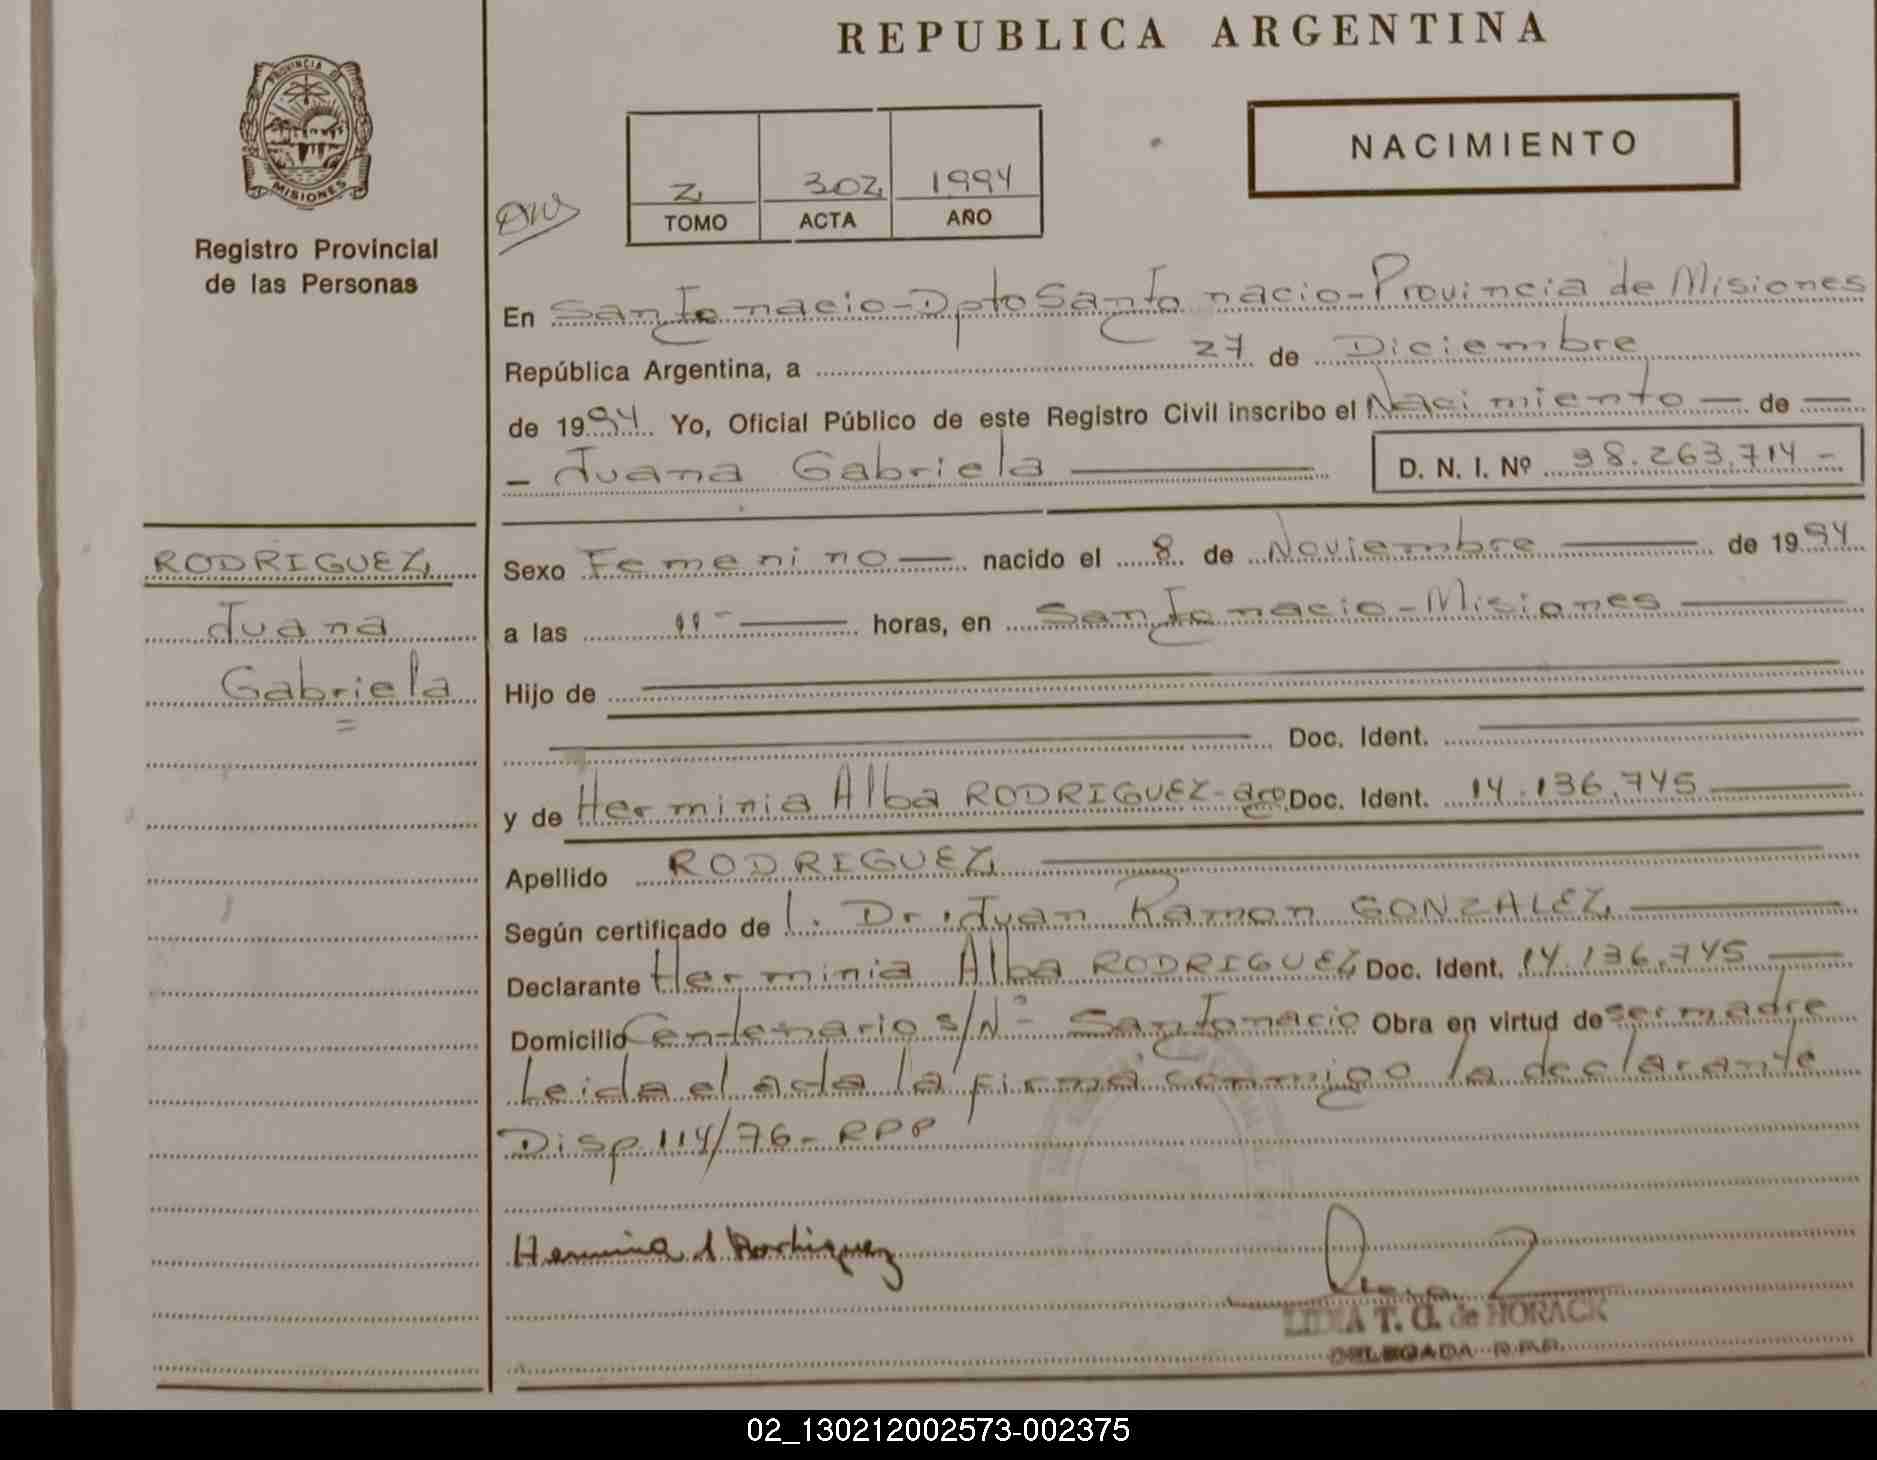 REPUBLICA ARGENTINA
PROVINCIA DE
MISIONES
Registro Provincial
de las Personas
NACIMIENTO
2 302 1994
TOMO ACTA AÑO
En San Ignacio - Dpto San Ignacio - Provincia de Misiones
República Argentina, a 27 de Diciembre
de 1994 Yo, Oficial Público de este Registro Civil inscribo el Nacimiento — de —
- Juana Gabriela —
D. N. I. Nº 38.263.714 -
RODRIGUEZ
Juana
Gabriela
=
Sexo Femenino — nacido el 8 de Noviembre — de 1994
a las 11 - — horas, en San Ignacio - Misiones —
Hijo de
Doc. Ident.
y de Herminia Alba RODRIGUEZ - arg Doc. Ident. 14.136.745 —
Apellido RODRIGUEZ —
Según certificado de l. Dr. Juan Ramon GONZALEZ —
Declarante Herminia Alba RODRIGUEZ Doc. Ident. 14.136.745 —
Domicilio Centenario s/Nº - San Ignacio Obra en virtud de ser madre
Leida el acta la firma conmigo la declarante
Disp. 114/76 - RPP
Herminia A Rodriguez
LIDIA T. G. de HORACK
DELEGADA R.P.P.
02_130212002573-002375